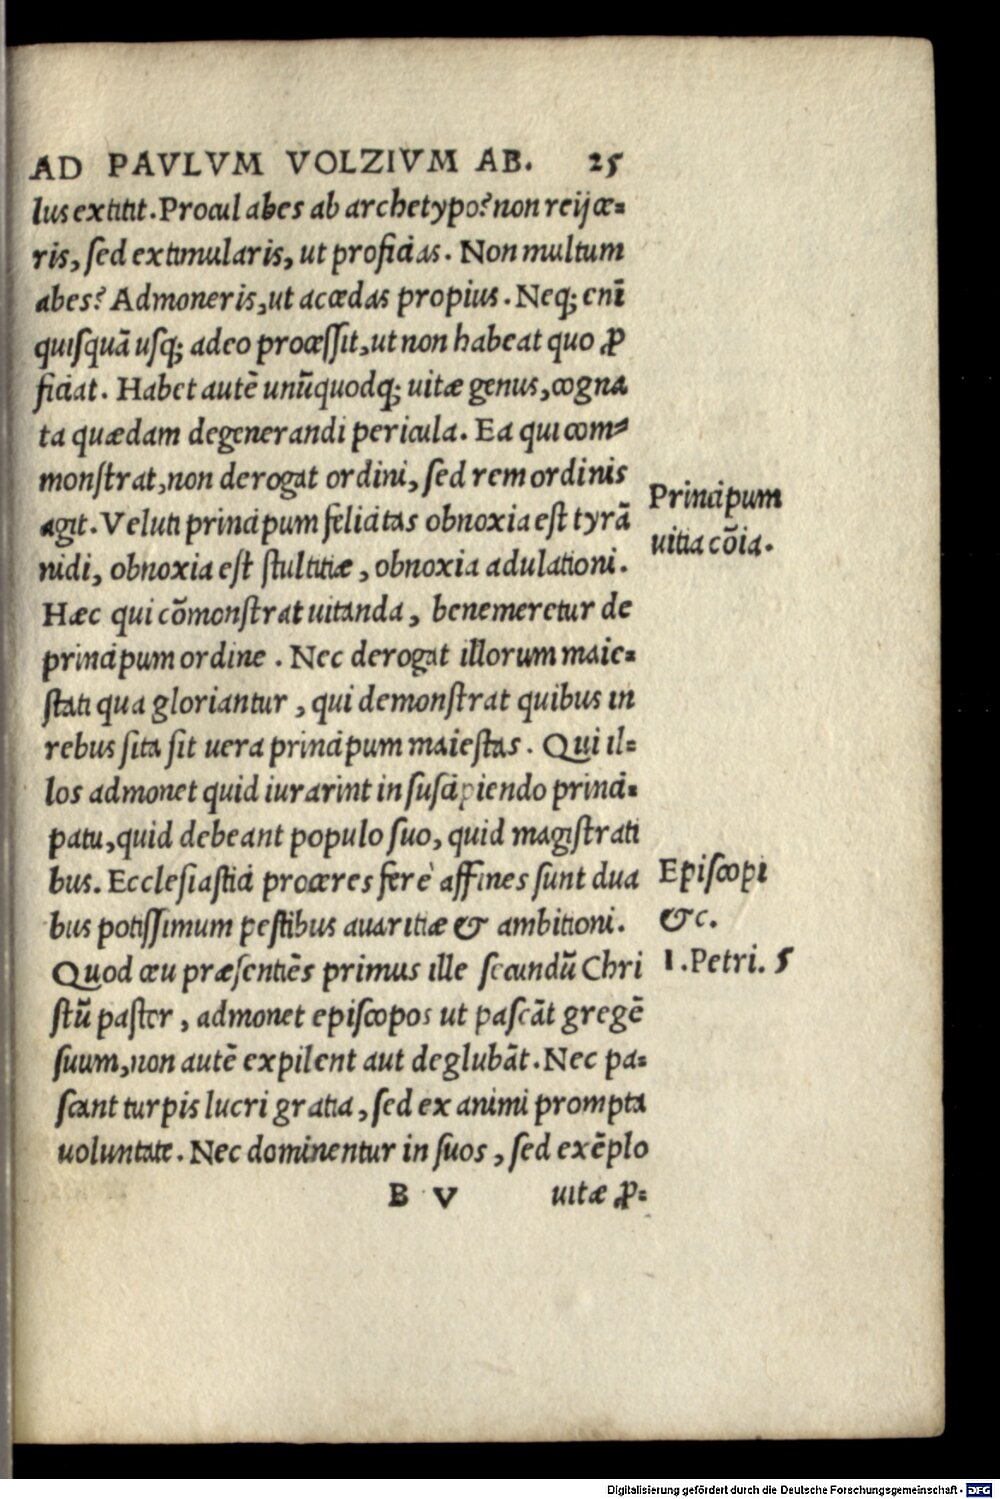 AD PAVLVM VOLZIVM AB. 25
lus extitit. Procul abes ab archetypo? non reijce-
ris, sed extimularis, ut proficias. Non multum
abes? Admoneris, ut accedas propius. Neq; enī
quisquā usq; adeo processit, ut non habeat quo ꝓ
ficiat. Habet autē unūquodq; uitæ genus, cogna
ta quædam degenerandi pericula. Ea qui com-
monstrat, non derogat ordini, sed rem ordinis
agit. Veluti principum felicitas obnoxia est tyrā
nidi, obnoxia est stultitiæ, obnoxia adulationi.
Hæc qui cōmonstrat uitanda, benemeretur de
principum ordine. Nec derogat illorum maie-
stati qua gloriantur, qui demonstrat quibus in
rebus sita sit uera principum maiestas. Qui il-
los admonet quid iurarint in suscipiendo princi-
patu, quid debeant populo suo, quid magistrati
bus. Ecclesiastici proceres ferè affines sunt dua
bus potissimum pestibus auaritiæ & ambitioni.
Quod ceu præsentiēs primus ille secundū Chri
stū paster, admonet episcopos ut pascāt gregē
suum, non autē expilent aut deglubāt. Nec pa-
scant turpis lucri gratia, sed ex animi prompta
uoluntate. Nec dominentur in suos, sed exēplo
B V uitæ ꝓ-
Principum
uitia cōia.
Episcopi
&c.
1. Petri. 5
Digitalisierung gefördert durch die Deutsche Forschungsgemeinschaft - DFG